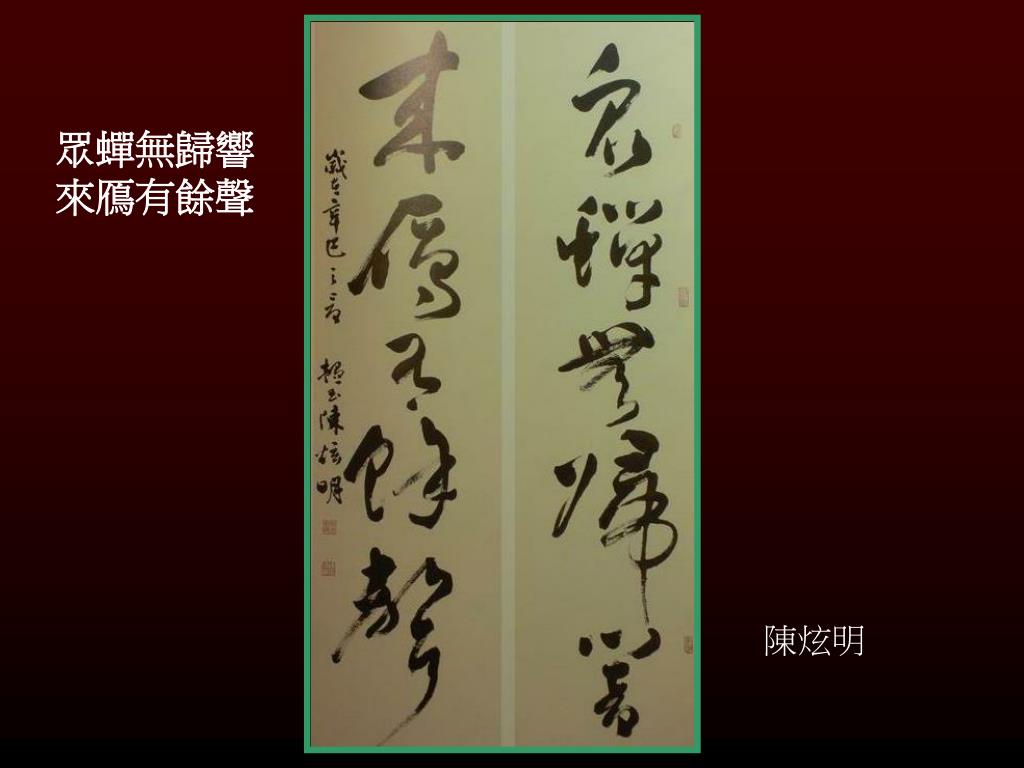 眾蟬無歸響
來鴈有餘聲
眾蟬無歸響
來鴈有餘聲
歲在辛巳之
陳炫明
陳炫明